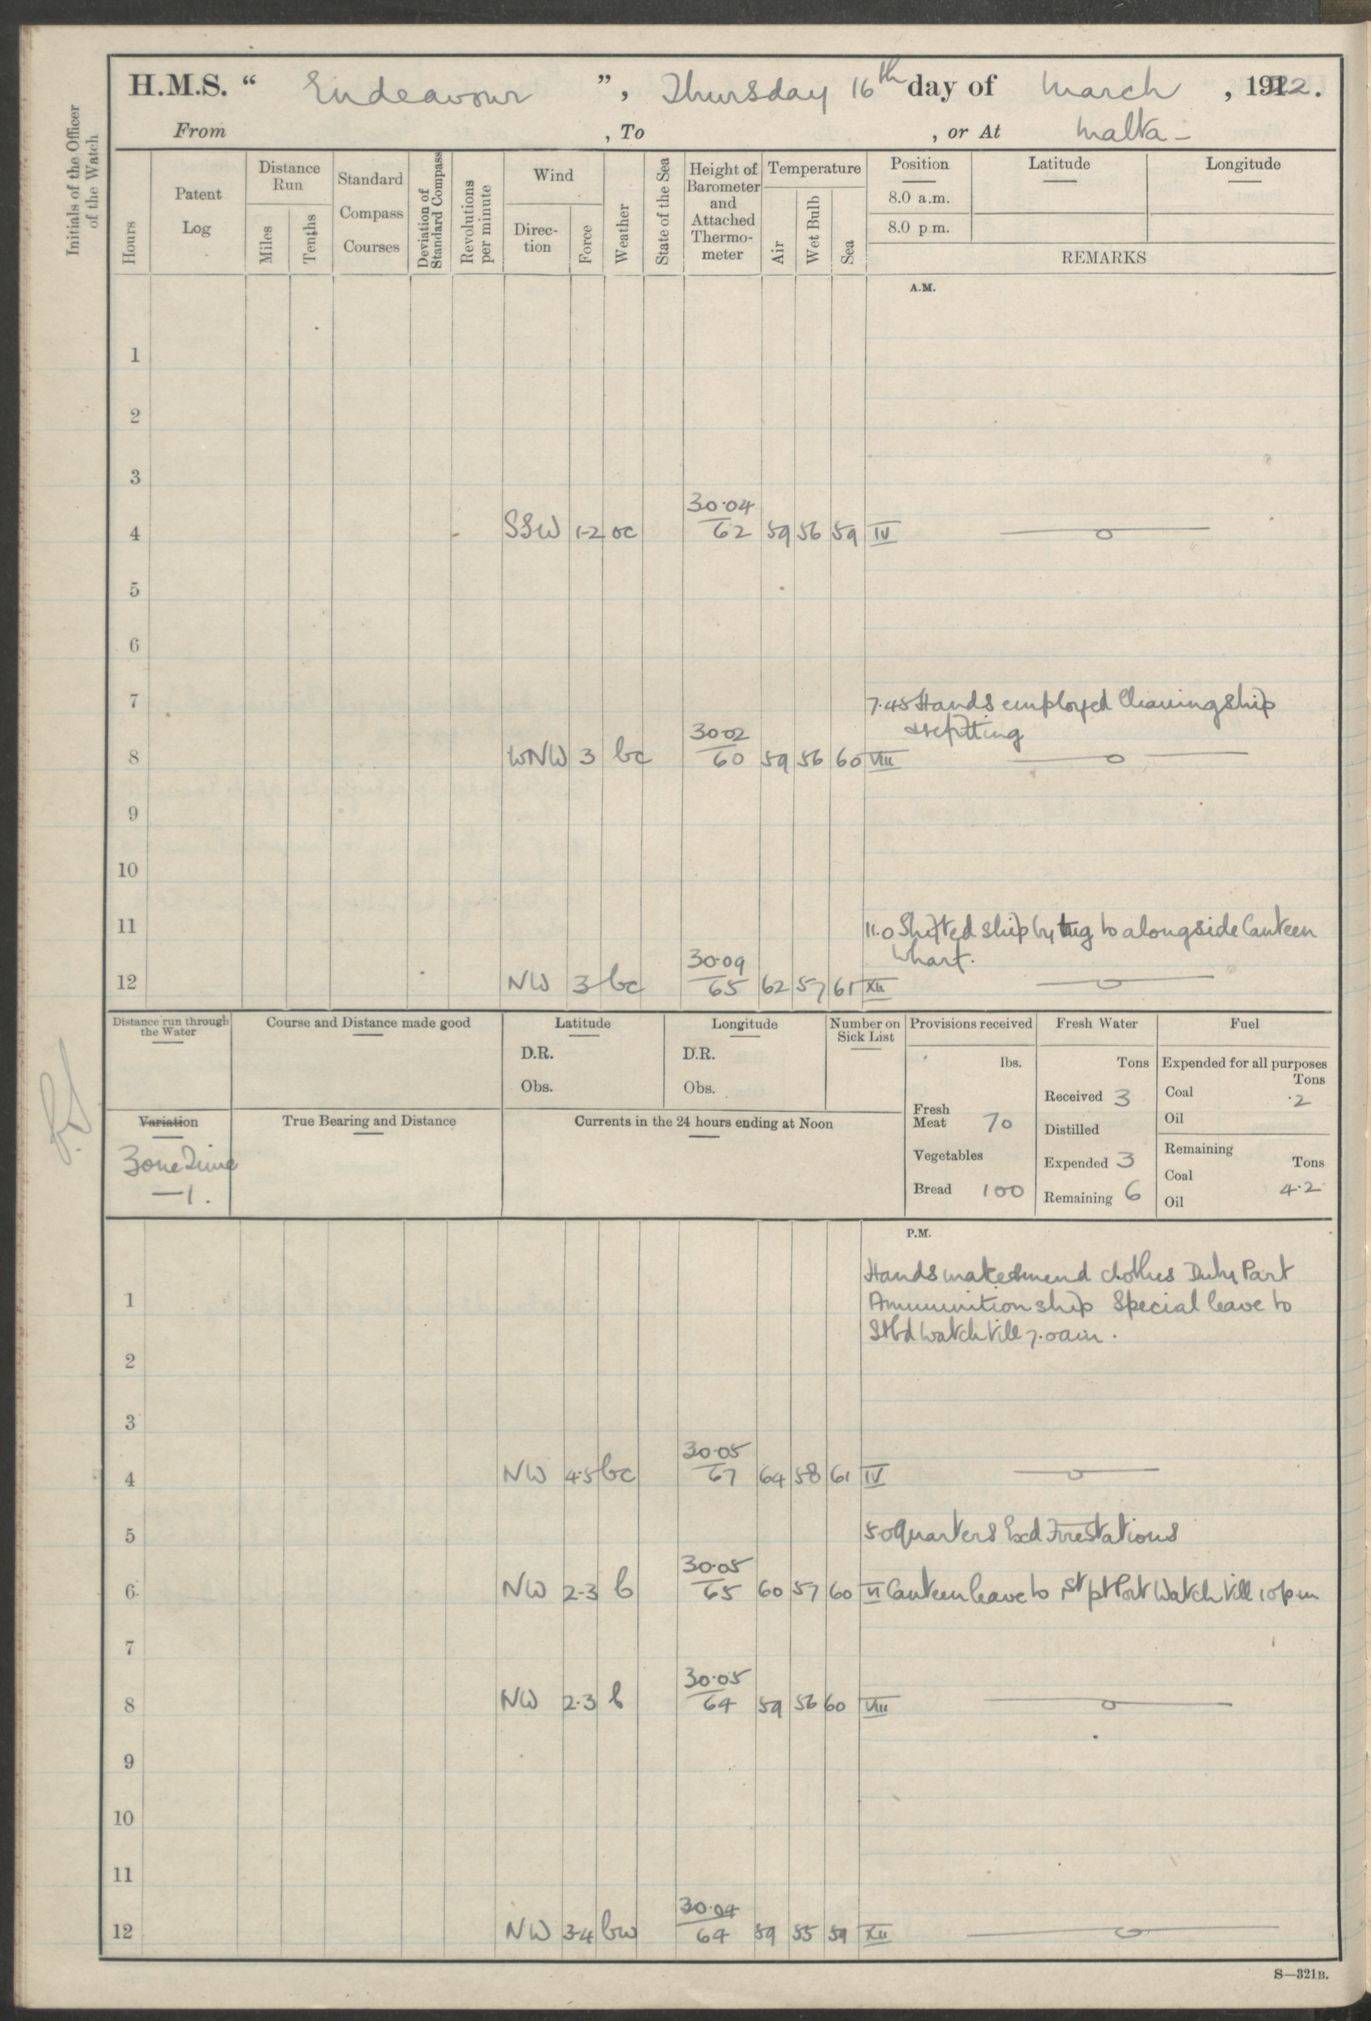 H.M.S. “ Endeavour ”, Thursday 16th day of March , 1922.
From , To , or At Malta –
Initials of the Officer of the Watch
Hours
Patent Log
Distance Run
Miles
Tenths
Standard Compass Courses
Deviation of Standard Compass
Revolutions per minute
Wind
Direction
Force
Weather
State of the Sea
Height of Barometer and Attached Thermometer
Temperature
Air
Wet Bulb
Sea
Position Latitude Longitude
8.0 a.m.
8.0 p.m.
REMARKS
A.M.
1
2
3
30.04
4 SSW 1-2 oc 62 59 56 59 IV
5
6
7 7.45 Hands employed Cleaning ship
& refitting
30.02
8 WNW 3 bc 60 59 56 60 VIII
9
10
11 11.0 Shifted ship by tug to alongside Canteen
Wharf.
30.09
12 NW 3 bc 65 62 57 61 XII
Distance run through the Water
Course and Distance made good
Latitude
D.R.
Obs.
Longitude
D.R.
Obs.
Number on Sick List
Provisions received
lbs.
Fresh Meat 70
Vegetables
Bread 100
Fresh Water
Tons
Received 3
Distilled
Expended 3
Remaining 6
Fuel
Expended for all purposes
Tons
Coal .2
Oil
Remaining
Tons
Coal 4.2
Oil
Variation
Zone Time
–1.
True Bearing and Distance
Currents in the 24 hours ending at Noon
P.M.
Hands make & mend clothes Duty Part
1 Ammunition ship Special leave to
Stbd Watch till 7.0 am.
2
3
30.05
4 NW 4.5 bc 67 64 58 61 IV
5 5.0 Quarters Exd Fire stations
30.05
6 NW 2-3 b 65 60 57 60 VI Canteen leave to 1st pt Port Watch till 10 pm
7
30.05
8 NW 2.3 b 64 59 56 60 VIII
9
10
11
30.04
12 NW 3-4 bw 64 59 55 59 XII
S—321B.